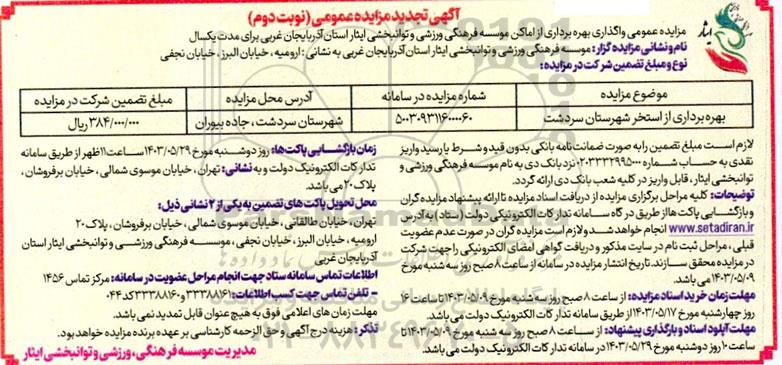 آگهی تجدید مزایده عمومی (نوبت دوم)
مزایده عمومی واگذاری بهره برداری از اماکن موسسه فرهنگی ورزشی و توانبخشی ایثار استان آذربایجان غربی برای مدت یکسال
نام و نشانی مزایده گزار: موسسه فرهنگی ورزشی و توانبخشی ایثار استان آذربایجان غربی به نشانی: ارومیه، خیابان البرز، خیابان نجفی
نوع و مبلغ تضمین شرکت در مزایده:
ایثار
موضوع مزایده شماره مزایده در سامانه آدرس محل مزایده مبلغ تضمین شرکت در مزایده
بهره برداری از استخر شهرستان سردشت ۵۰۰۳۰۹۳۱۱۶۰۰۰۰۶۰ شهرستان سردشت، جاده بیوران ۳۸۴/۰۰۰/۰۰۰ ریال
لازم است مبلغ تضمین را به صورت ضمانت نامه بانکی بدون قید و شرط یا رسید واریز
نقدی به حساب شماره ۰۲۰۳۳۳۲۹۹۵۰۰۰ نزد بانک دی به نام موسسه فرهنگی ورزشی و
توانبخشی ایثار، قابل واریز در کلیه شعب بانک دی ارائه گردد.
توضیحات: کلیه مراحل برگزاری مزایده از دریافت اسناد مزایده تا ارائه پیشنهاد مزایده گران
و بازگشایی پاکت ها از طریق درگاه سامانه تدارکات الکترونیکی دولت (ستاد) به آدرس
www.setadiran.ir انجام خواهد شد و لازم است مزایده گران در صورت عدم عضویت
قبلی، مراحل ثبت نام در سایت مذکور و دریافت گواهی امضای الکترونیکی را جهت شرکت
در مزایده محقق سازند. تاریخ انتشار مزایده در سامانه از ساعت ۸ صبح روز سه شنبه مورخ
۱۴۰۳/۰۵/۰۹ می باشد.
مهلت زمان خرید اسناد مزایده: از ساعت ۸ صبح روز سه شنبه مورخ ۱۴۰۳/۰۵/۰۹ تا ساعت ۱۶
روز چهارشنبه مورخ ۱۴۰۳/۰۵/۱۷ از طریق سامانه تدارکات الکترونیک دولت می باشد.
مهلت آپلود اسناد و بارگذاری پیشنهاد: از ساعت ۸ صبح روز سه شنبه مورخ ۱۴۰۳/۰۵/۰۹ تا
ساعت ۱۰ روز دوشنبه مورخ ۱۴۰۳/۰۵/۲۹ در سامانه تدارکات الکترونیک دولت می باشد.
زمان بازگشایی پاکت ها: روز دوشنبه مورخ ۱۴۰۳/۰۵/۲۹ ساعت ۱۱ ظهر از طریق سامانه
تدارکات الکترونیک دولت و به نشانی: تهران، خیابان موسوی شمالی، خیابان برفروشان،
پلاک ۲۰ می باشد.
محل تحویل پاکت های تضمین به یکی از ۲ نشانی ذیل:
تهران، خیابان طالقانی، خیابان موسوی شمالی، خیابان برفروشان، پلاک ۲۰
ارومیه، خیابان البرز، خیابان نجفی، موسسه فرهنگی ورزشی و توانبخشی ایثار استان
آذربایجان غربی
اطلاعات تماس سامانه ستاد جهت انجام مراحل عضویت در سامانه: مرکز تماس ۱۴۵۶
- تلفن تماس جهت کسب اطلاعات: ۳۳۳۸۸۱۶۱ و ۳۳۳۸۸۱۶۰ کد ۰۴۴
مهلت زمان های اعلامی فوق به هیچ عنوان قابل تمدید نمی باشد.
تذکر: هزینه درج آگهی و حق الزحمه کارشناسی بر عهده برنده مزایده خواهد بود.
مدیریت موسسه فرهنگی، ورزشی و توانبخشی ایثار